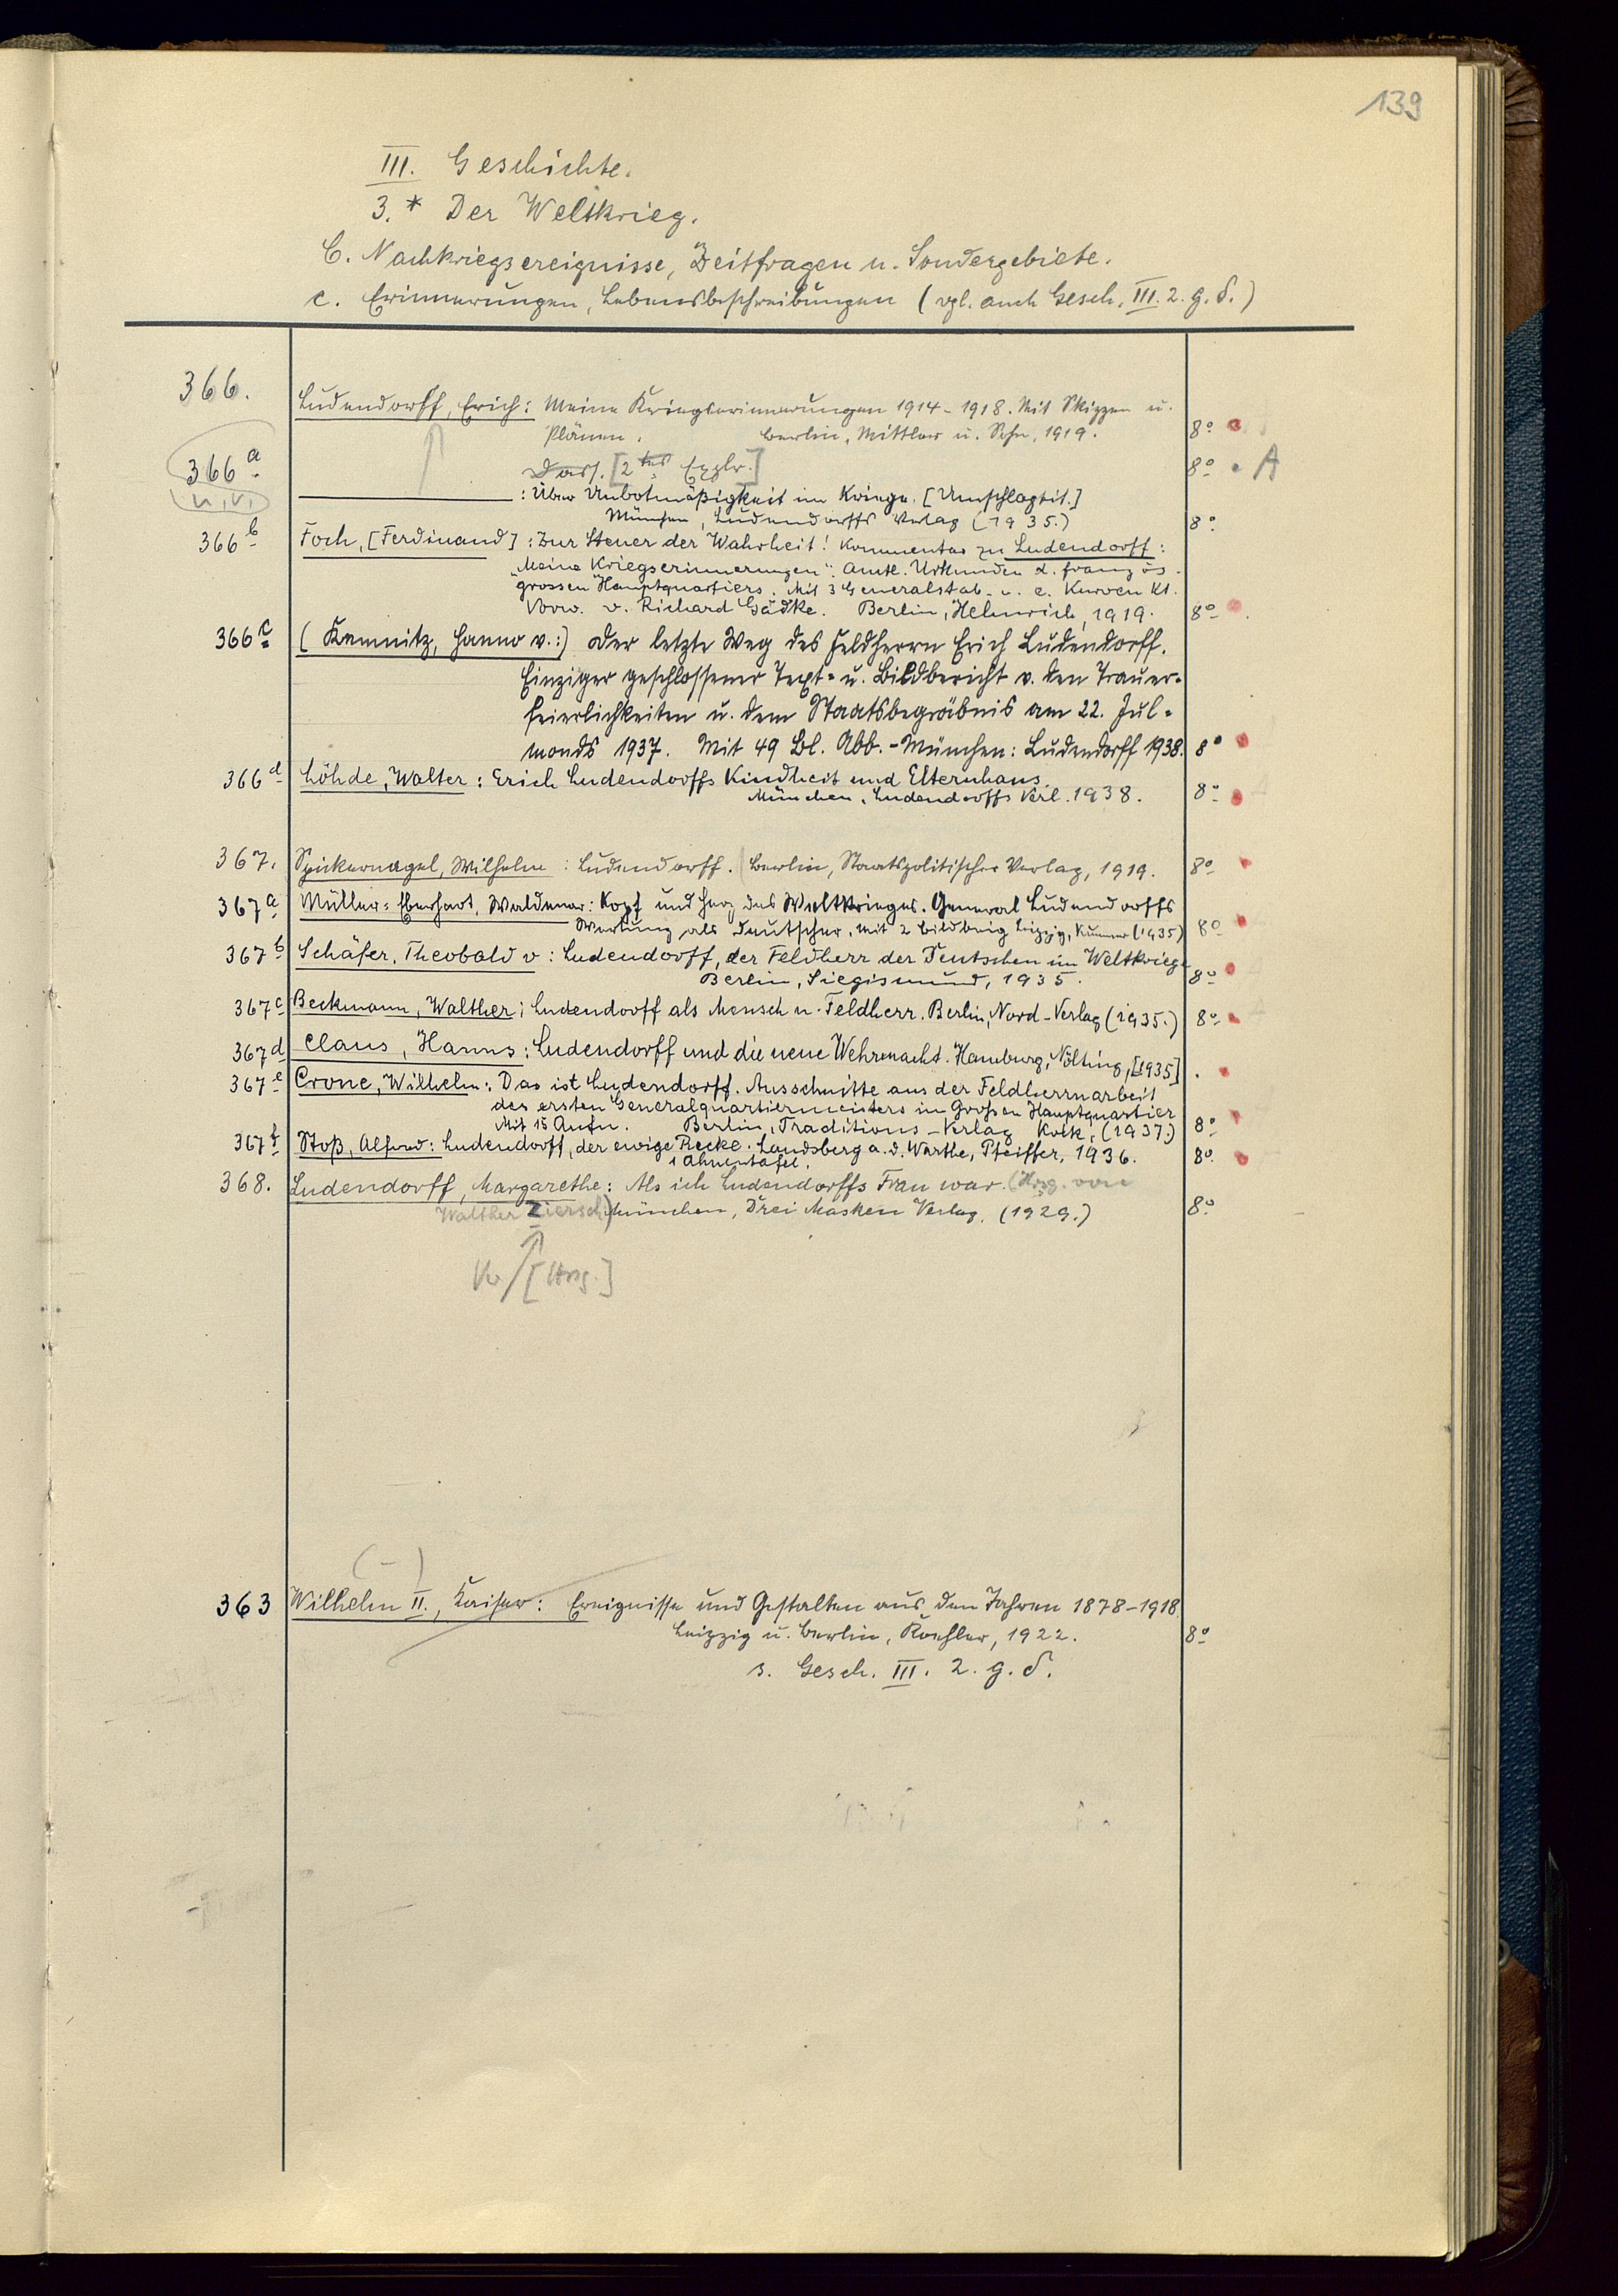 139
III. Geschichte.
3.* Der Weltkrieg.
C. Nachkriegsereignisse, Zeitfragen u. Sondergebiete.
c. Erinnerungen, Lebensbeschreibungen (vgl. auch Gesch. III. 2. g. δ.)
366. Ludendorff, Erich: Meine Kriegserinnerungen 1914-1918. Mit Skizzen u.
Plänen. Berlin, Mittler u. Sohn, 1919. 8°
366a Dass. [2tes Explr.] 8° A
: Über Unbotmäßigkeit im Kriege. [Umschlagtit.]
München, Ludendorffs Verlag (1935.) 8°
366b Foch, [Ferdinand]: Zur Steuer der Wahrheit! Kommentar zu Ludendorff:
"Meine Kriegserinnerungen". Amtl. Urkunden d. französ.
grossen Hauptquartiers. Mit 3 Generalstab- u. e. Kurven Kt.
Vorw. v. Richard Gädke. Berlin, Helmrich, 1919. 8°
366c (Kemnitz, Hanno v.:) Der letzte Weg des Feldherrn Erich Ludendorff.
Einziger geschlossener Text- u. Bildbericht v. den Trauer-
feierlichkeiten u. dem Staatsbegräbnis am 22. Jul-
monds 1937. Mit 49 Bl. Abb. - München: Ludendorff 1938. 8°
366d Löhde, Walter: Erich Ludendorffs Kindheit und Elternhaus.
München, Ludendorffs Verl. 1938. 8°
367. Spickernagel, Wilhelm: Ludendorff. Berlin, Staatspolitischer Verlag, 1919. 8°
367a Müller-Eberhart, Waldemar: Kopf und Herz des Weltkrieges. General Ludendorffs
Wertung als Deutscher. Mit 2 Bildbeig Leipzig, Kummer (1935) 8°
367b Schäfer, Theobald v: Ludendorff, der Feldherr der Deutschen im Weltkriege
Berlin, Siegismund, 1935. 8°
367c Beckmann, Walther: Ludendorff als Mensch u. Feldherr. Berlin, Nord-Verlag (1935.) 8°
367d Claus, Hanns: Ludendorff und die neue Wehrmacht. Hamburg, Nölting, [1935].
367e Crone, Wilhelm: Das ist Ludendorff. Ausschnitte aus der Feldherrnarbeit
des ersten Generalquartiermeisters im Großen Hauptquartier
Mit 15 Aufn. Berlin, Traditions-Verlag Kolk, (1937.) 8°
367f Stoß, Alfred: Ludendorff, der ewige Recke. Landsberg a. d. Warthe, Pfeiffer, 1936. 8°
1 Ahnentafel.
368. Ludendorff, Margarethe: Als ich Ludendorffs Frau war. (Hrsg. von
Walther Ziersch) München, Drei Masken Verlag, (1929.) 8°
[Hrsg.]
(-)
363 Wilhelm II., Kaiser: Ereignisse und Gestalten aus den Jahren 1878-1918
Leipzig u. Berlin, Koehler, 1922. 8°
s. Gesch. III. 2. g. δ.